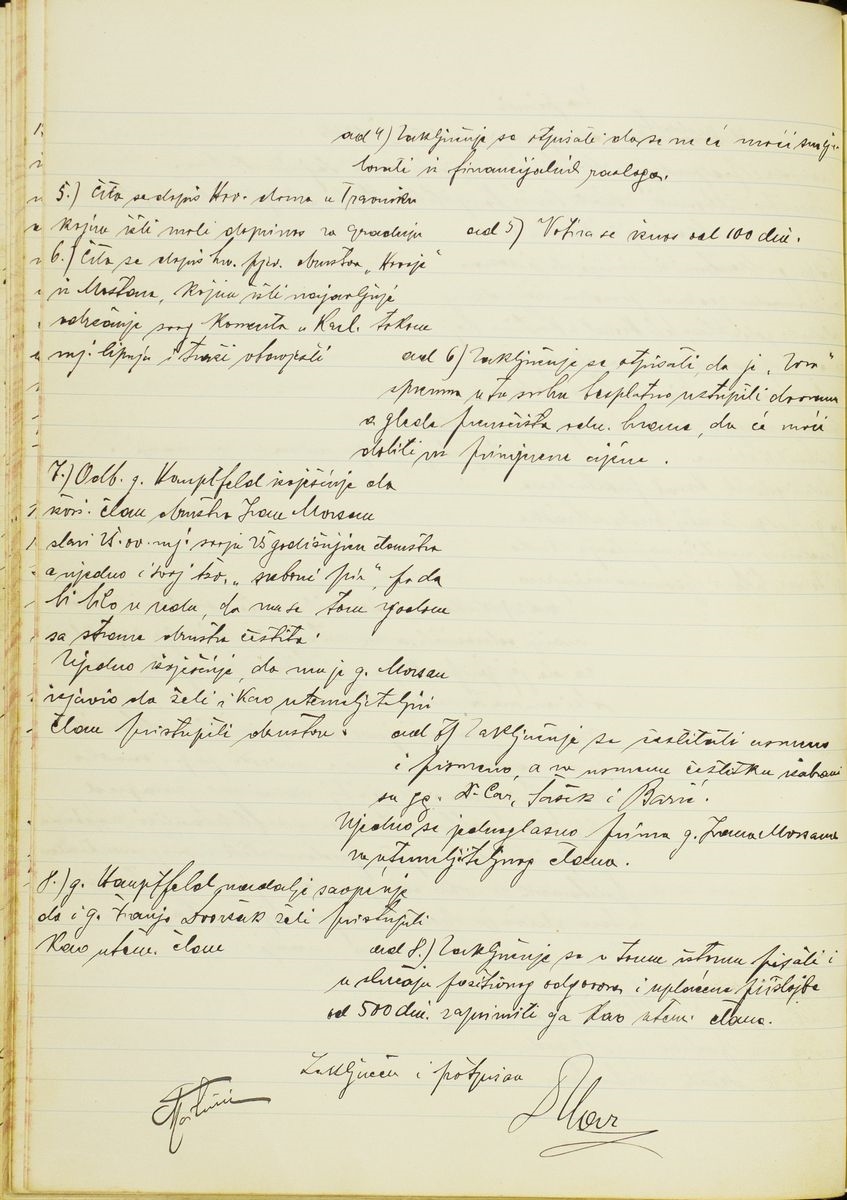 ad 4) Zaključuje se otpisati da se ne će moći
iz financijalnih razloga.
5.) Čita se dopis Hrv. doma u Travniku
kojim isti moli doprinos za gradnju
ad 5) Votira se iznos od 100 din.
6.) Čita se dopis hrv. pjev. društva „Hrvoje"
iz Mostara, kojim isti najavljuje
održanje svog koncerta u Karl. tokom
mj. lipnja i traži obavjesti
ad 6) Zaključuje se otpisati da je „Zora"
spremna u tu svrhu besplatno ustupiti dvoranu
a gleda prenoćišta odn. hrane, da će moći
dobiti uz primjerene cijene.
7.) Odb. g. Hauptfeld izvješćuje da
izvrš. član društva Ivan Morsan
slavi 25. ov. mj. svoju 25 godišnjicu članstva
a ujedno i svoj tzv. „srebrni pir", pa da
bi bilo u redu, da mu se tom zgodom
sa strane društva čestita.
Ujedno izvješćuje, da mu je g. Morsan
izjavio da želi i kao utemeljiteljni
član pristupiti društvu.
ad 7) Zaključuje se čestitati usmeno
i pismeno, a za usmenu čestitku izabrani
su gg. Dr. Car, Šašek i Barić.
Ujedno se jednoglasno prima g. Ivana Morsana
za utemeljiteljnog člana.
8.) g. Hauptfeld nadalje saopćuje
da i g. Franjo Dvoržak želi pristupiti
kao utem. član
ad 8.) Zaključuje se u tom istomu pisati i
u slučaju pozitivnog odgovora i uplaćene pristojbe
od 500 din. zaprimiti ga kao utem. člana.
Zaključeno i potpisan